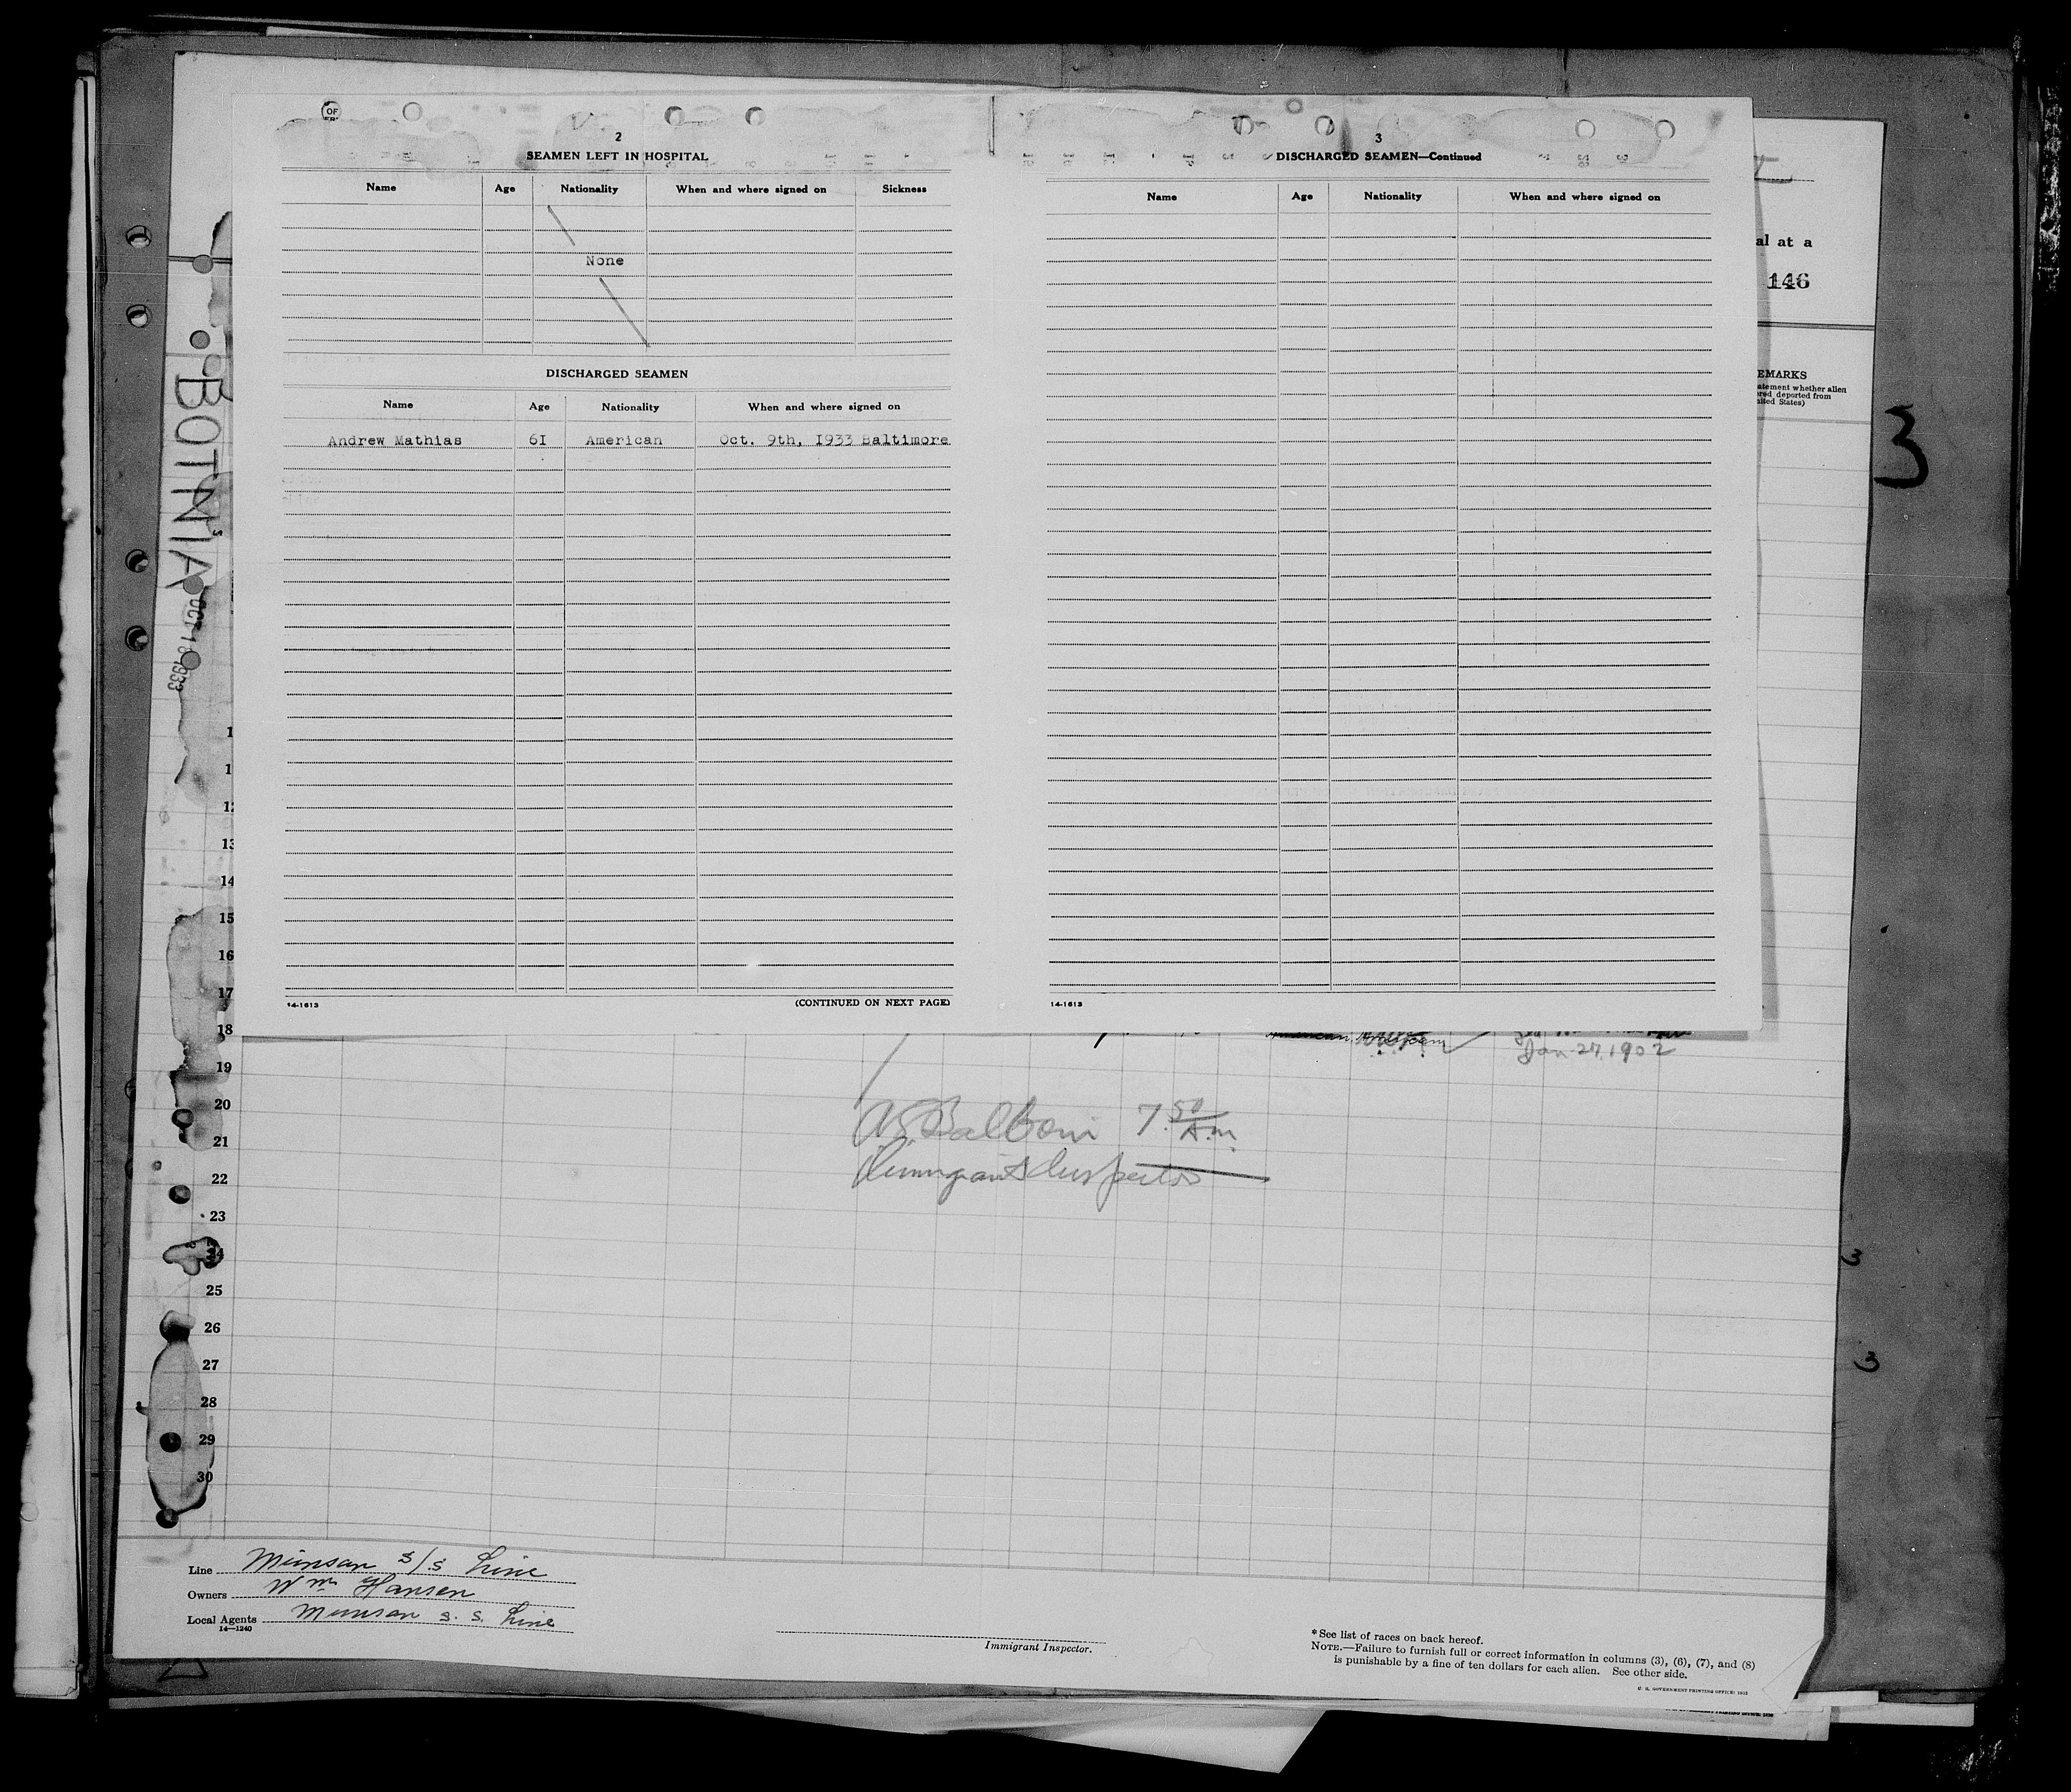 2
SEAMEN LEFT IN HOSPITAL
Name Age Nationality When and where signed on Sickness
None
DISCHARGED SEAMEN
Name Age Nationality When and where signed on
Andrew Mathias 6I American Oct. 9th, I933 Baltimore
14-1613 (CONTINUED ON NEXT PAGE)
3
DISCHARGED SEAMEN—Continued
Name Age Nationality When and where signed on
14-1613
al at a
146
EMARKS
atement whether alien
ured deported from
nited States)
3
BOTNIA
OCT 18 1933
1
1
12
13
14
15
16
17
18
19
20
21
22
23
24
25
26
27
28
29
30
American
Jan-27, 1902
7.50 A.m.
Immigrant Inspector
3
3
Line Munson s/s Line
Owners Wm Hansen
Local Agents Munson s. s. Line
14—1240
Immigrant Inspector.
*See list of races on back hereof.
NOTE.—Failure to furnish full or correct information in columns (3), (6), (7), and (8)
is punishable by a fine of ten dollars for each alien. See other side.
U. S. GOVERNMENT PRINTING OFFICE: 1932